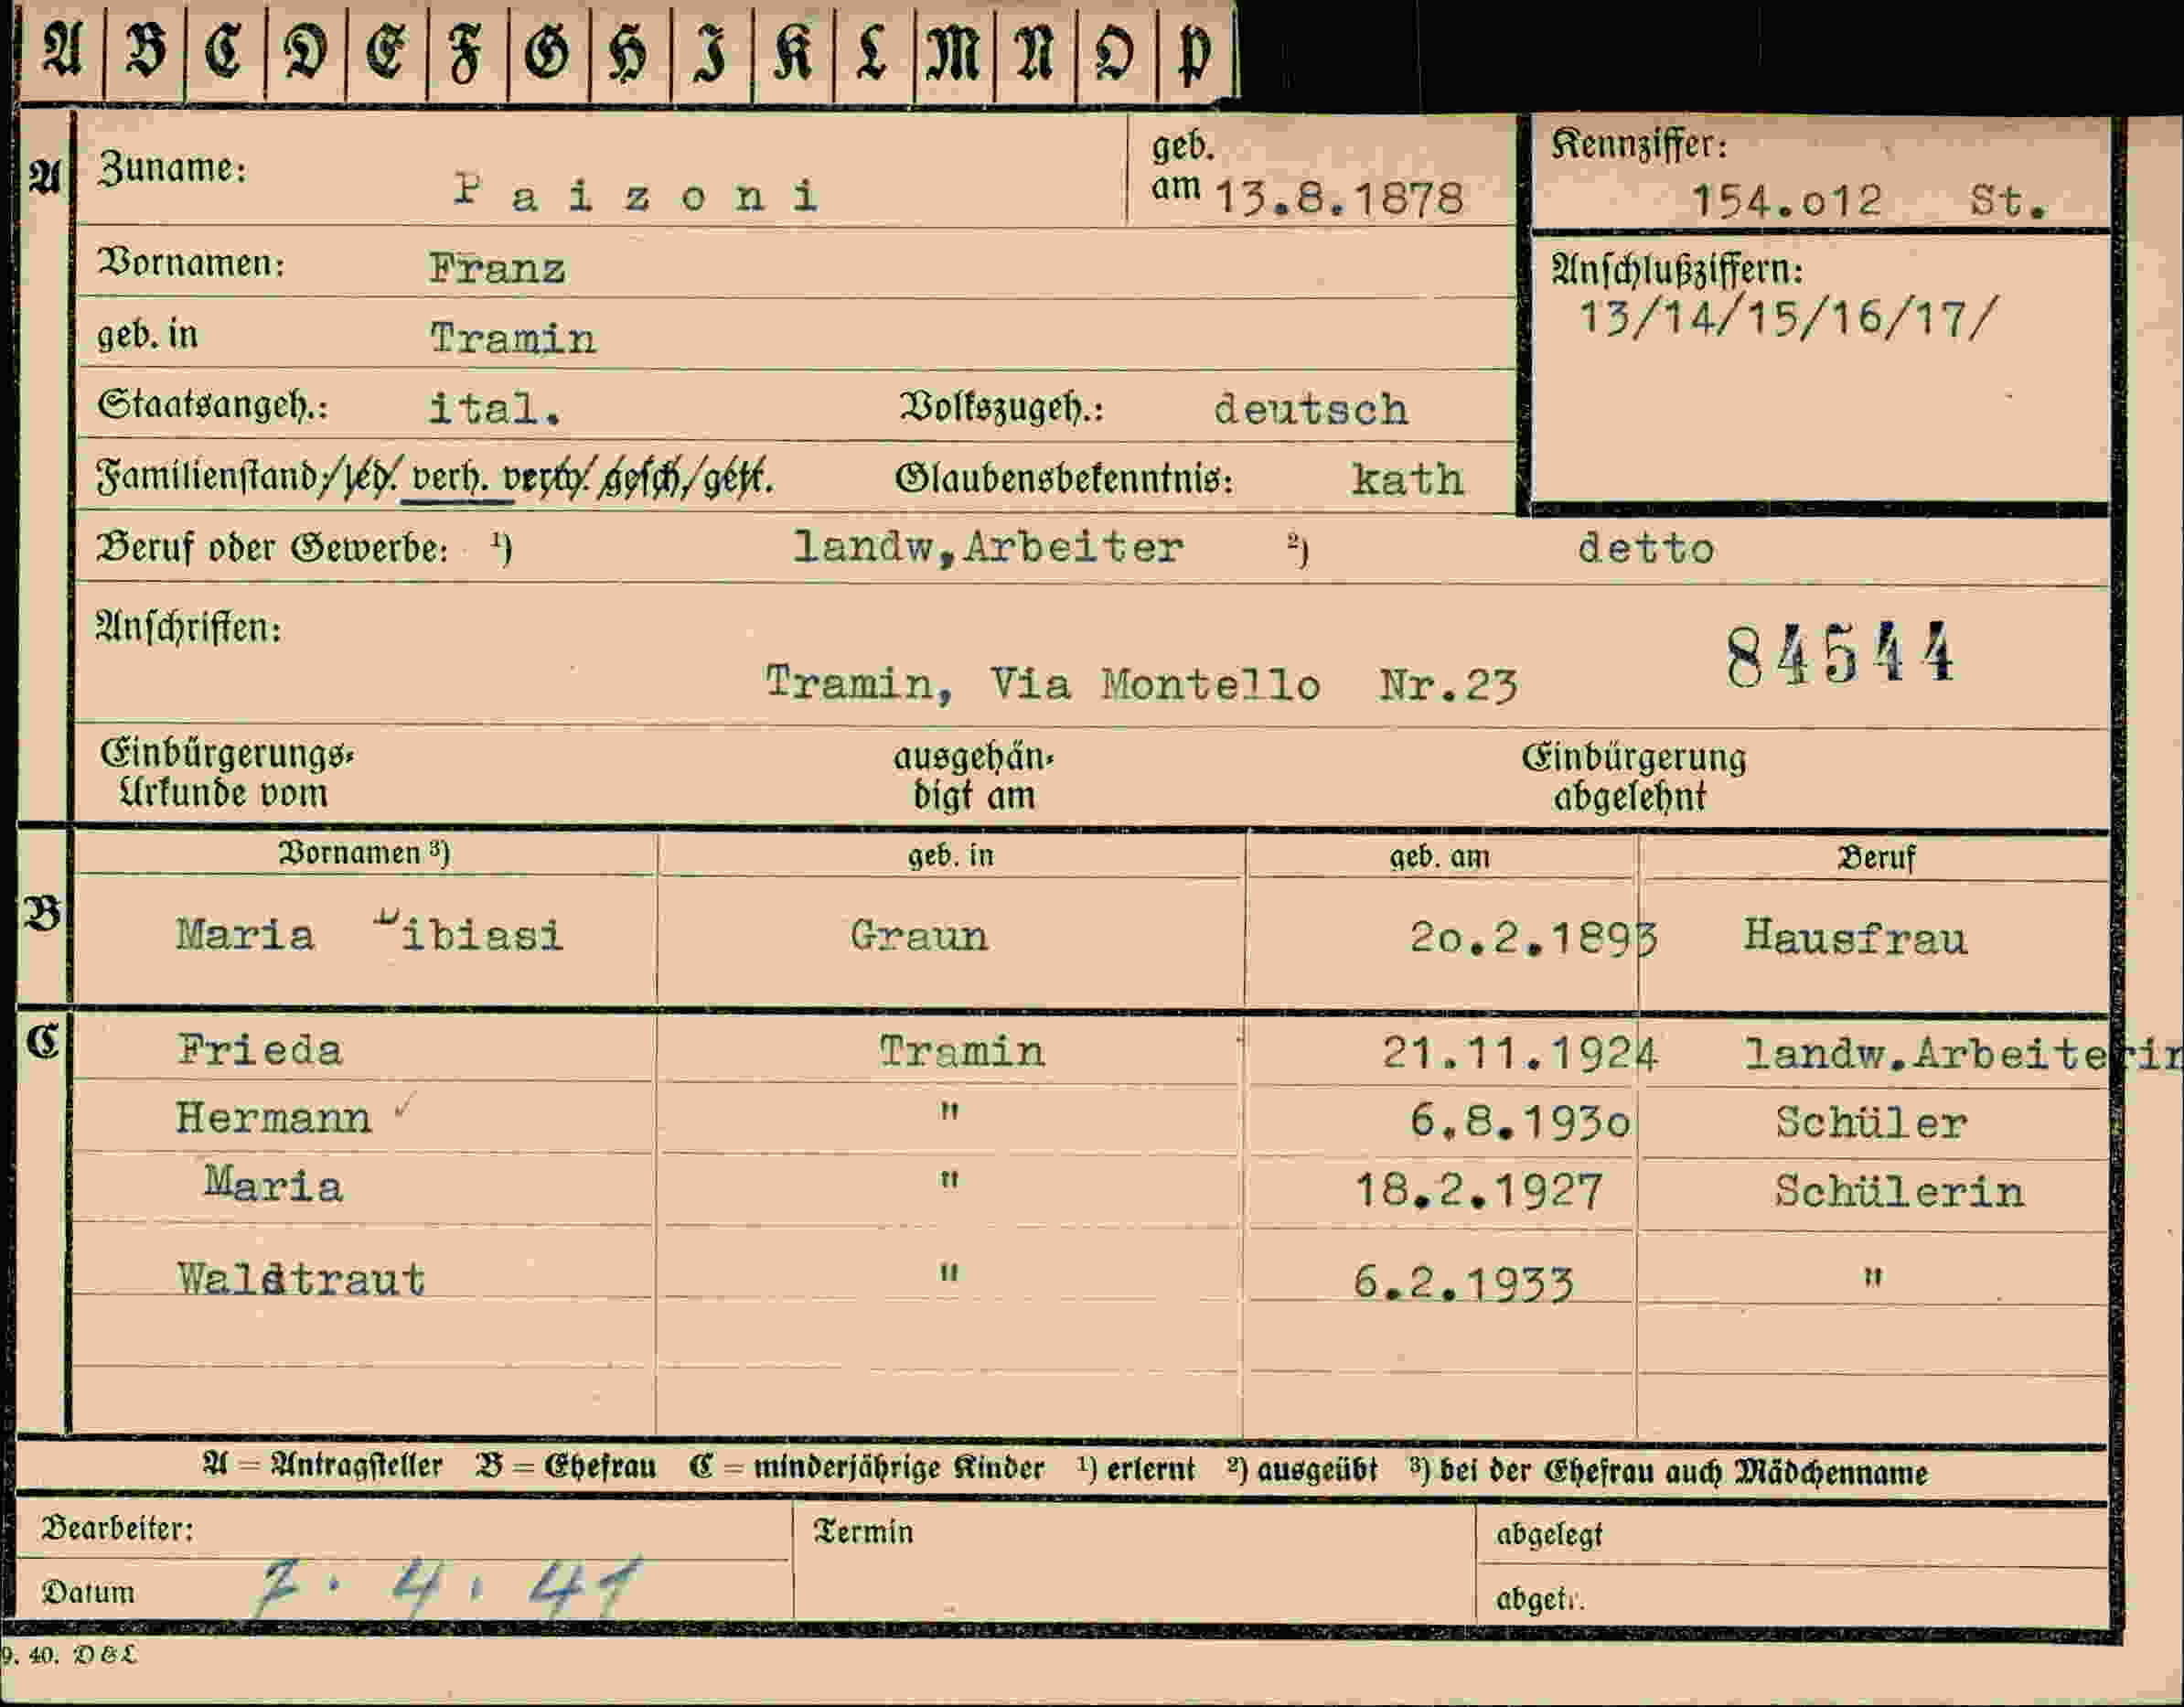 A B C D E F G H I K L M N O P
A Zuname: Paizoni geb. am 13.8.1878 Kennziffer: 154.o12 St.
Vornamen: Franz Anschlußziffern:
13/14/15/16/17/
geb. in Tramin
Staatsangeh.: ital. Volkszugeh.: deutsch
Familienstand: led. verh. verw. gesch. getr. Glaubensbekenntnis: kath
Beruf oder Gewerbe: ¹) landw,Arbeiter ²) detto
Anschriften: 84544
Tramin, Via Montello Nr.23
Einbürgerungs- ausgehän- Einbürgerung
Urkunde vom digt am abgelehnt
Vornamen ³) geb. in geb. am Beruf
B Maria Dibiasi Graun 2o.2.1893 Hausfrau
C Frieda Tramin 21.11.1924 landw.Arbeiterin
Hermann ✓ " 6.8.193o Schüler
Maria " 18.2.1927 Schülerin
Waldtraut " 6.2.1933 "
A = Antragsteller B = Ehefrau C = minderjährige Kinder ¹) erlernt ²) ausgeübt ³) bei der Ehefrau auch Mädchenname
Bearbeiter: Termin abgelegt
Datum 7.4.41 abgetr.
9. 40. D & L